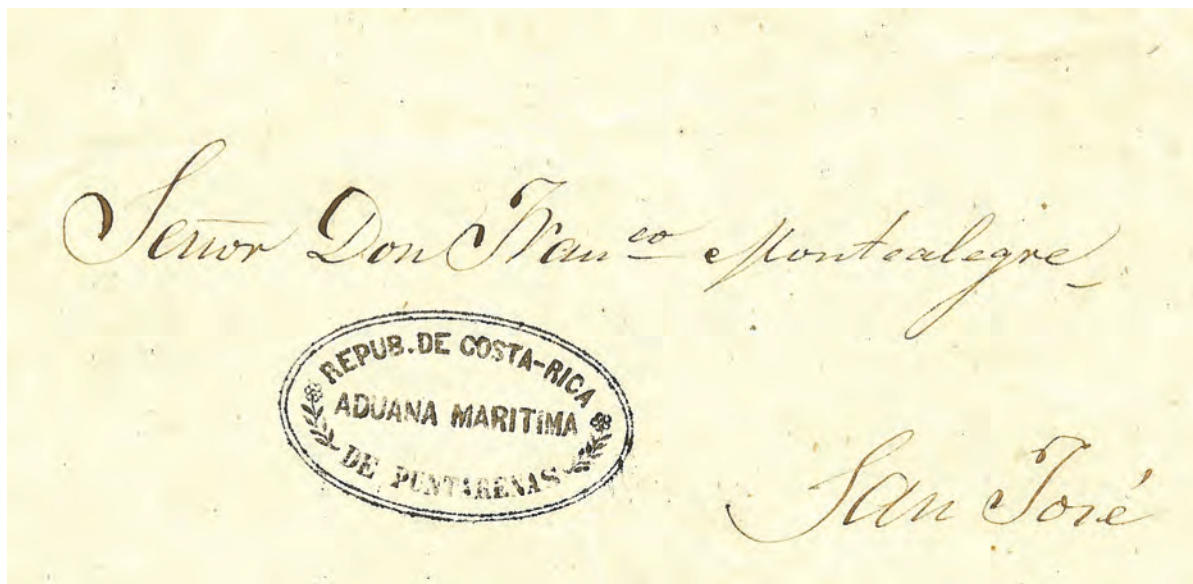 Señor Don Franco Montealegre
REPUB. DE COSTA-RICA
ADUANA MARITIMA
DE PUNTARENAS
San José